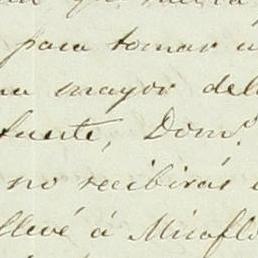 para tomar
mayor del
fuerte, Dom.º
no recibirás
llevé á Miraflo